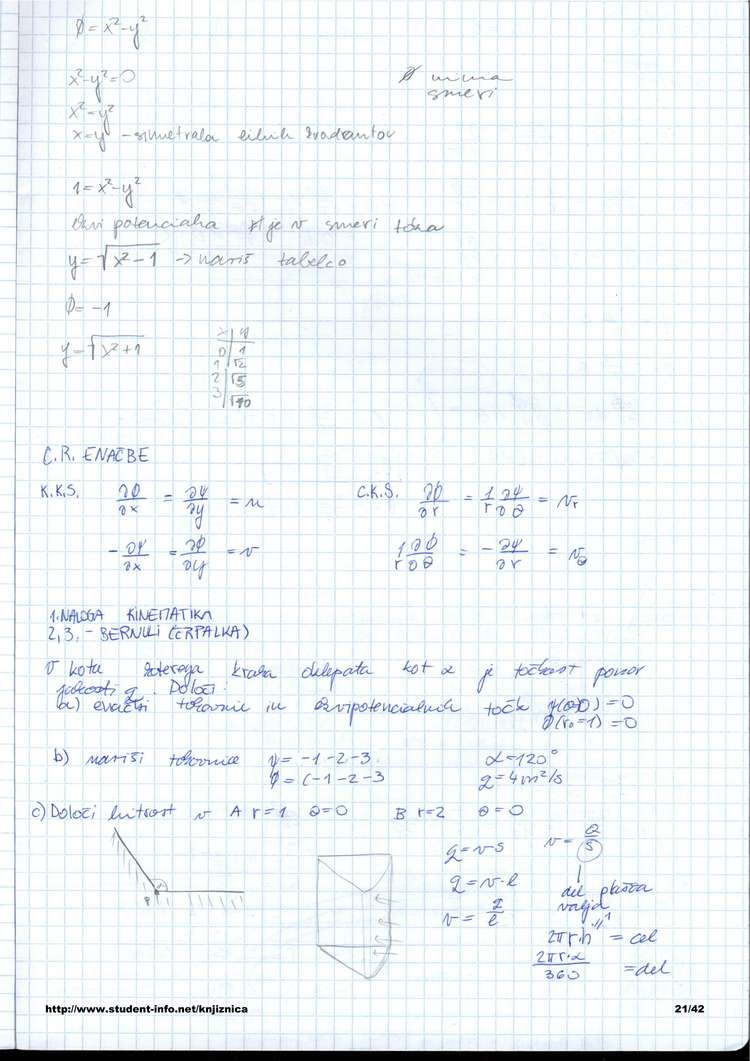 ∅ = x² - y²
x² - y² = 0
nima
smeri
x² = y²
x = y - simetrala kvadrantov
1 = x² - y²
Ekvi potenciala ki je v smeri toka
y = √(x² - 1) → nariš tabelco
∅ = -1
y = √(x² + 1)
x | y
0 | 1
1 | √2
2 | √5
3 | √10
C.R. ENAČBE
K.K.S. ∂∅/∂x = ∂ψ/∂y = u
C.K.S. ∂∅/∂r = 1/r ∂ψ/∂θ = vr
-∂ψ/∂x = ∂∅/∂y = v
1/r ∂∅/∂θ = -∂ψ/∂r = vθ
1. NALOGA KINEMATIKA
2, 3, - BERNULI (ČRPALKA)
V kotu katerega kraka oklepata kot α je točkast ponor
jakosti q. Določi:
a) enačbi tokovnic in ekvipotencialnih točk ψ(θ=0) = 0
∅(r₀=1) = 0
b) nariši tokovnice ψ = -1 -2 -3
α = 120°
∅ = (-1 -2 -3
q = 4 m²/s
c) Določi hitrost v A r=1 θ=0 B r=2 θ=0
q = v·s
v = Q/S
q = v·l
v = q/l
del plašča
valja
2πr·h = cel
1
2πr·α/360 = del
α
P
http://www.student-info.net/knjiznica
21/42